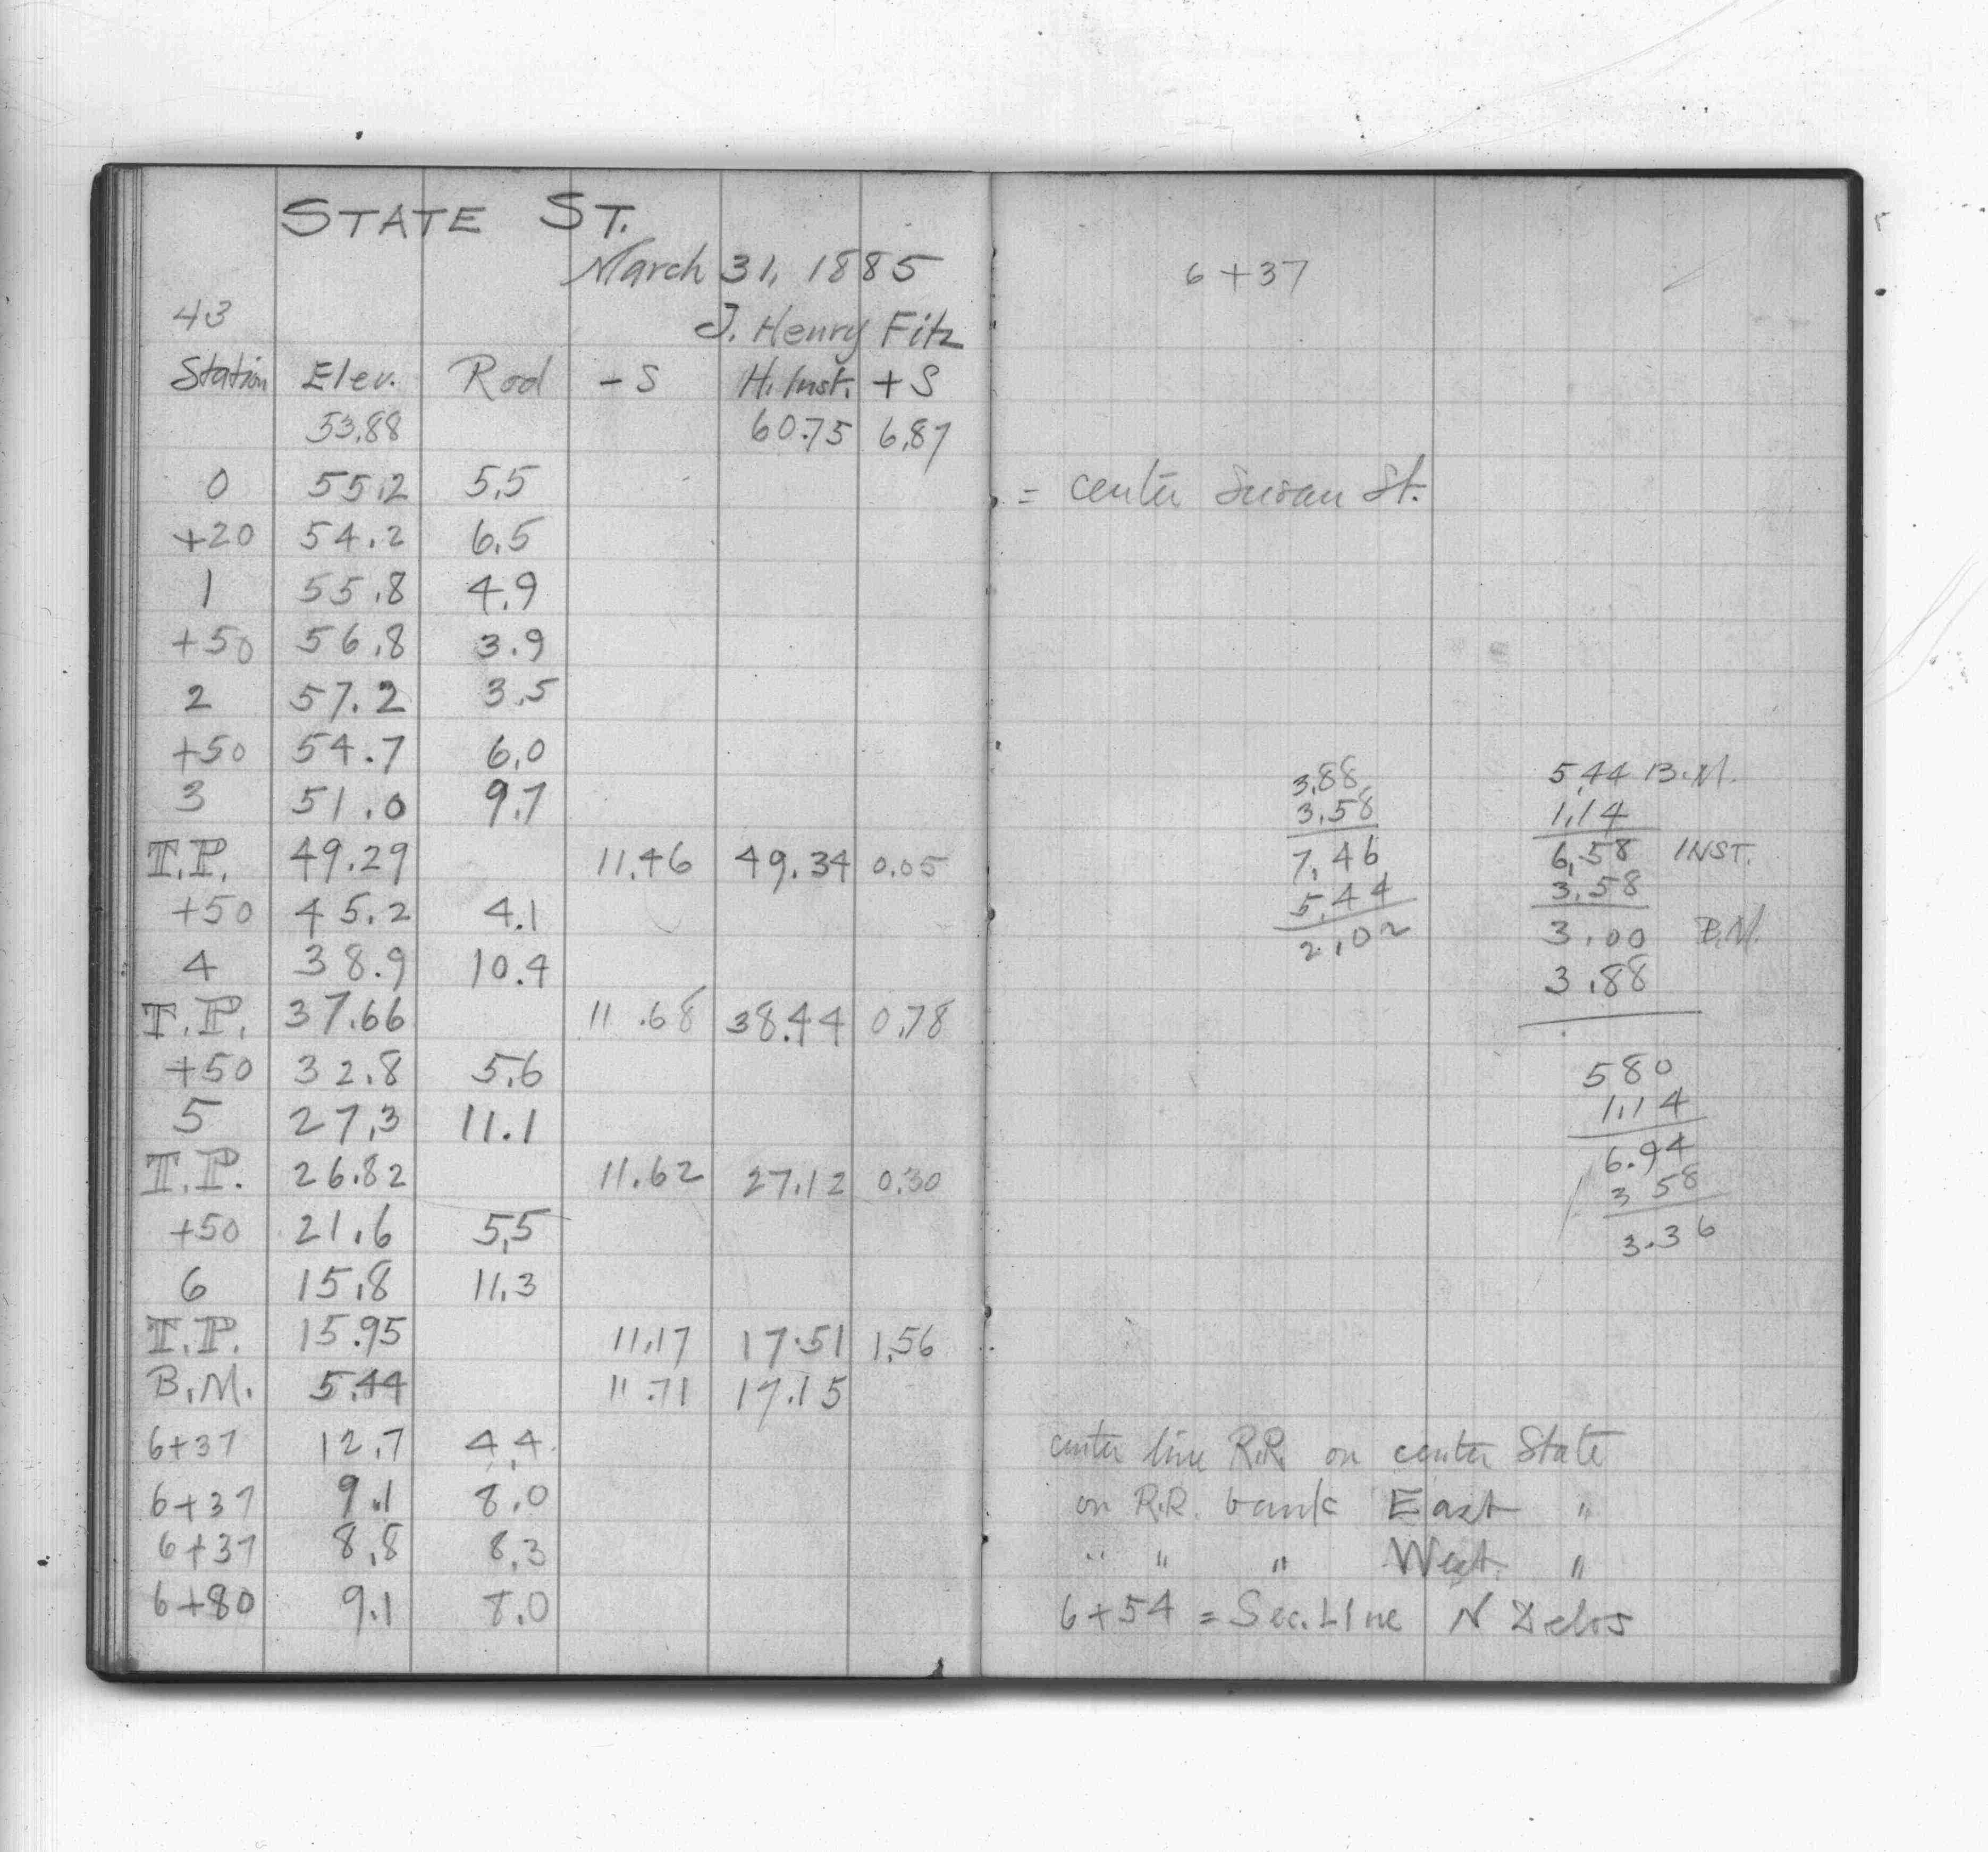 STATE ST.
March 31, 1885
J. Henry Fitz
43
Station Elev. Rod - S H. Inst. + S
53.88 60.75 6.87
0 55.2 5.5
+20 54.2 6.5
1 55.8 4.9
+50 56.8 3.9
2 57.2 3.5
+50 54.7 6.0
3 51.0 9.7
T.P. 49.29 11.46 49.34 0.05
+50 45.2 4.1
4 38.9 10.4
T.P. 37.66 11.68 38.44 0.78
+50 32.8 5.6
5 27.3 11.1
T.P. 26.82 11.62 27.12 0.30
+50 21.6 5.5
6 15.8 11.3
T.P. 15.95 11.17 17.51 1.56
B.M. 5.44 11.71 17.15
6+37 12.7 4.4
6+37 9.1 8.0
6+37 8.8 8.3
6+80 9.1 8.0
6+37
= center Susan St.
3.88
3.58
7.46
5.44
2.02
5.44 B.M.
1.14
6.58 INST.
3.58
3.00 B.M.
3.88
580
1.14
6.94
3 58
3.36
center line R.R. on center State
on R.R. bank East "
" " " West. "
6+54 = Sec. Line N Delos